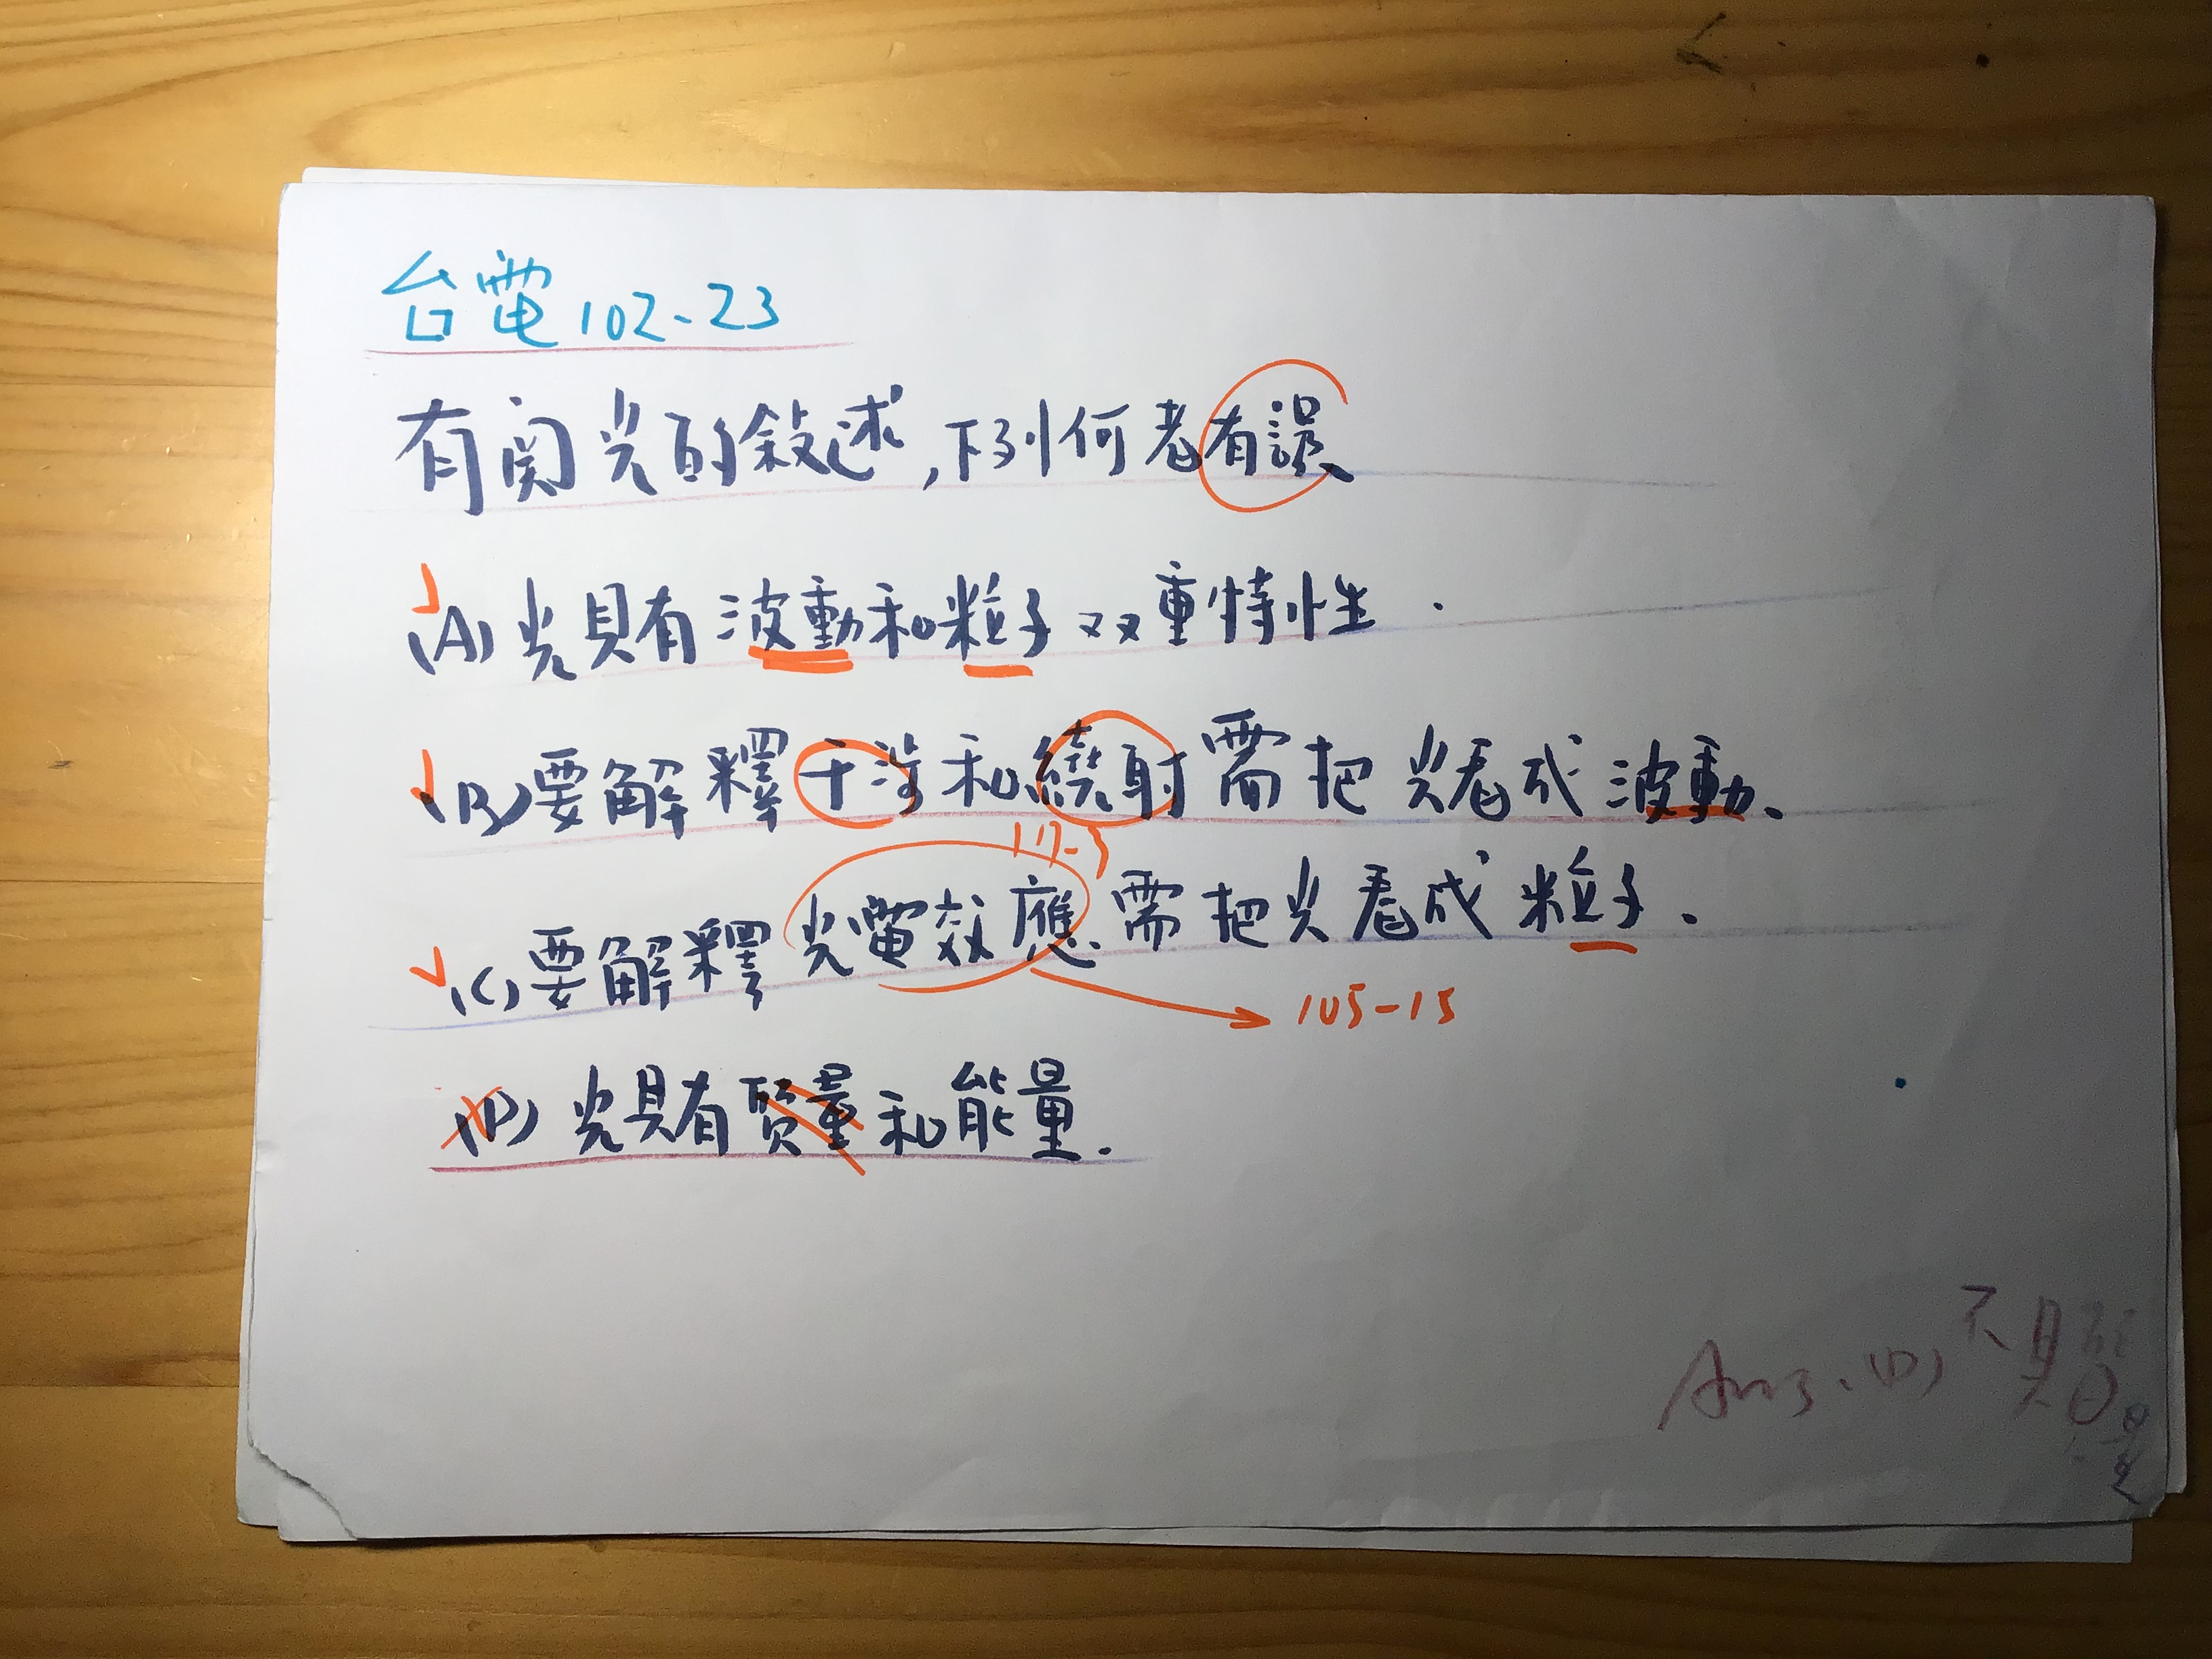 台電102-23
有関光的敘述,下列何者有誤
(A)光具有波動和粒子双重特性.
(B)要解釋干涉和繞射需把光看成波動.
(C)要解釋光電效應需把光看成粒子.
105-15
(D)光具有質量和能量.
Ans.(D)不具